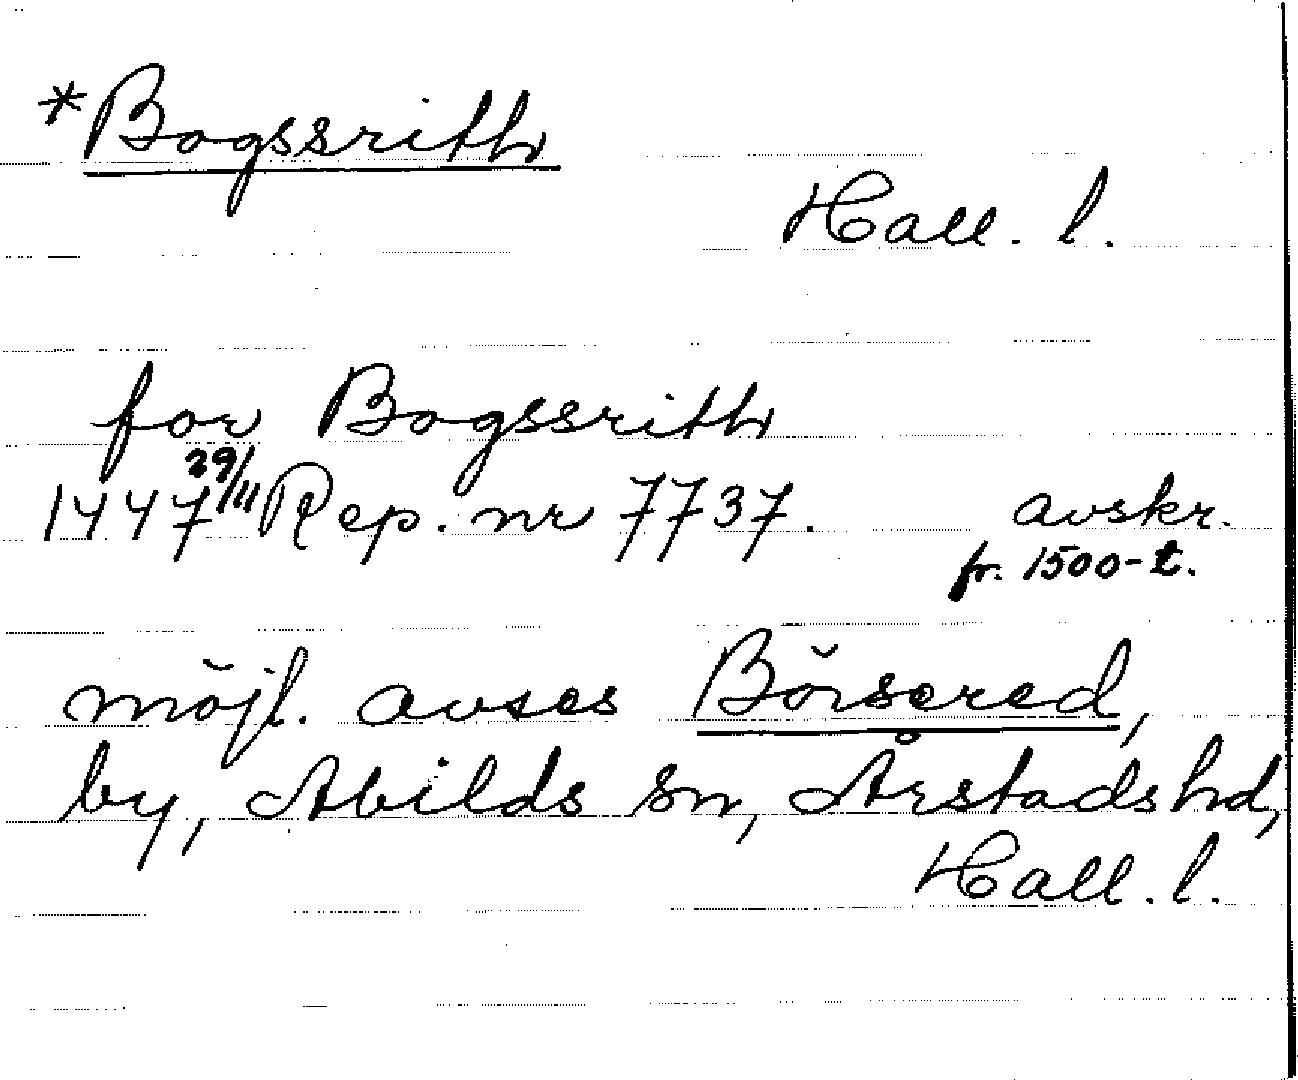 *Bogssrith
Hall. l.
for Bogssrith
1447 29/11 Rep. nr 7737. avskr.
fr. 1500-t.
möjl. avses Börsered,
by, Abilds sn, Årstads hd,
Hall. l.